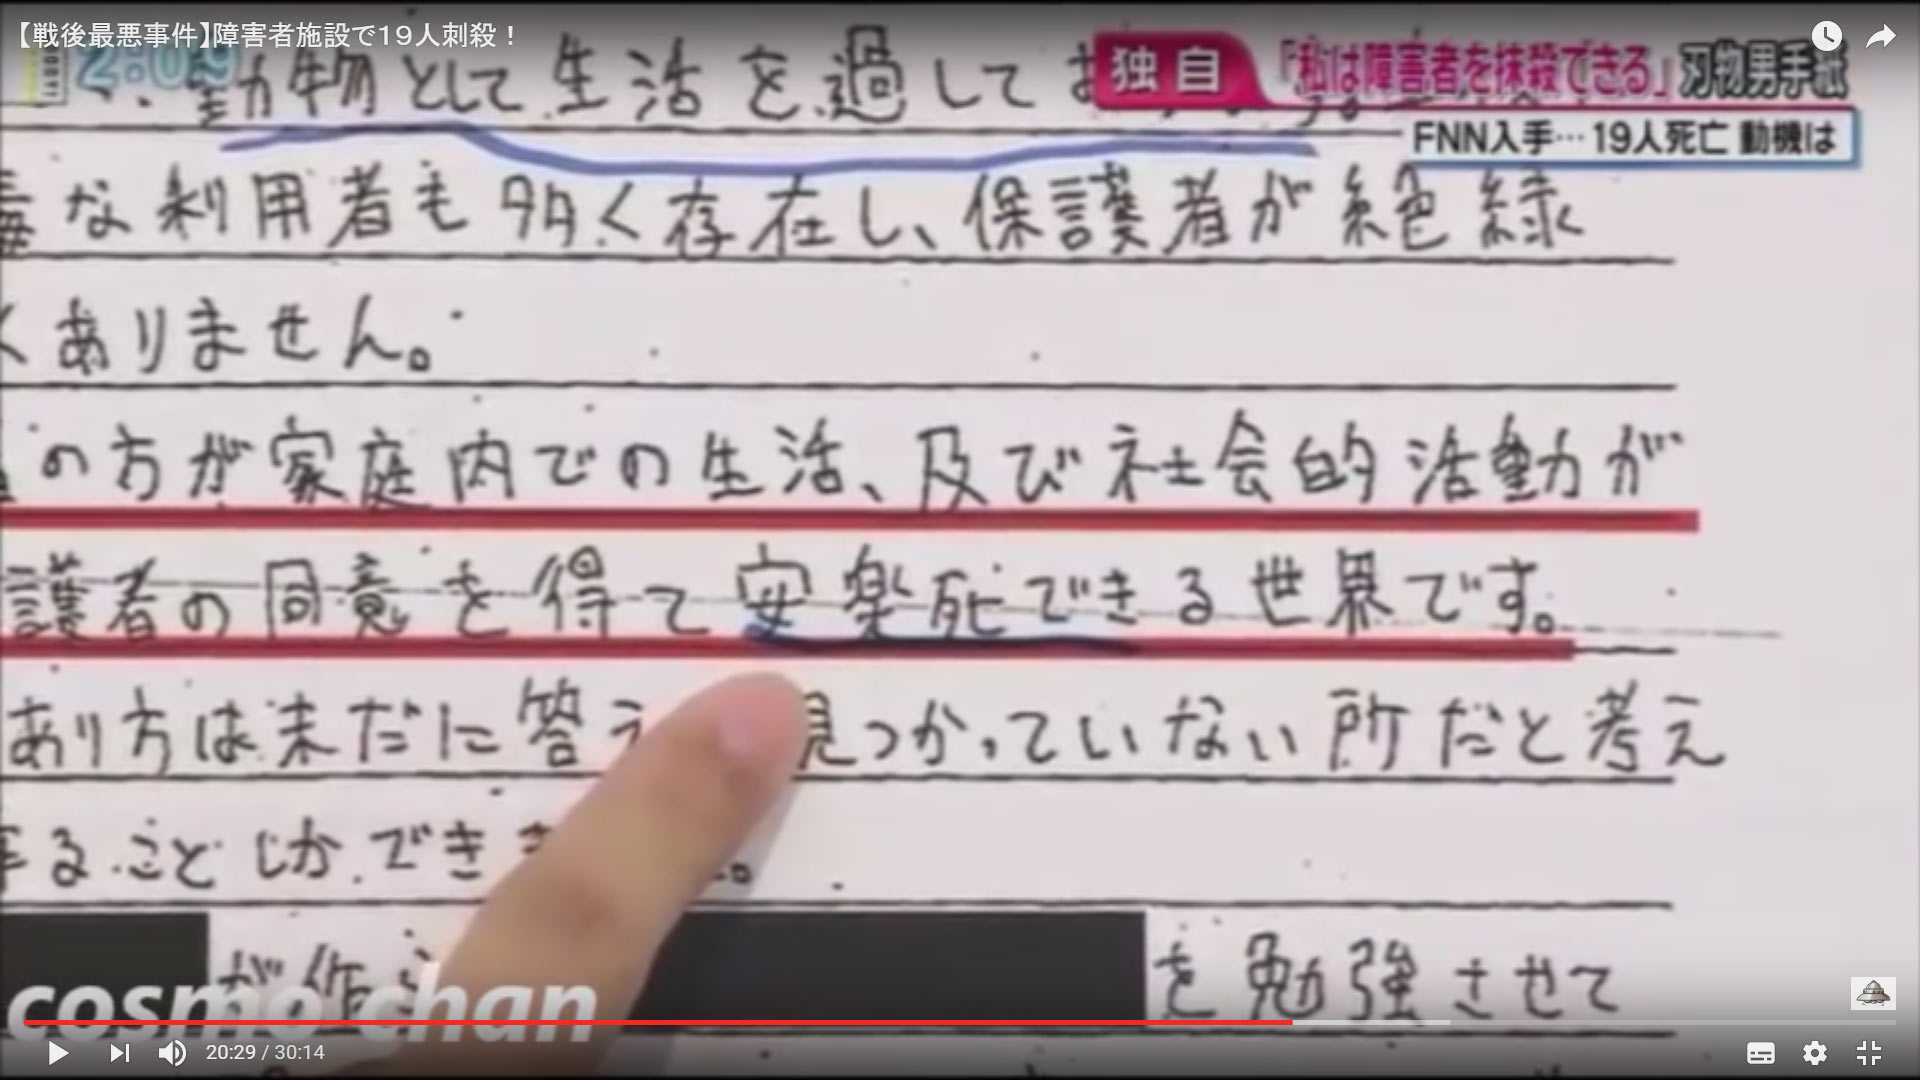 【戦後最悪事件】障害者施設で19人刺殺！
2:09
独自
「私は障害者を抹殺できる」刃物男手紙
FNN入手…19人死亡 動機は
動物として生活を過してお
な利用者も多く存在し、保護者が絶縁
くありません。
の方が家庭内での生活、及び社会的活動が
護者の同意を得て安楽死できる世界です。
あり方は未だに答え 見つかっていない所だと考え
ることしかできま
が作
を勉強させて
cosmo chan
20:29 / 30:14